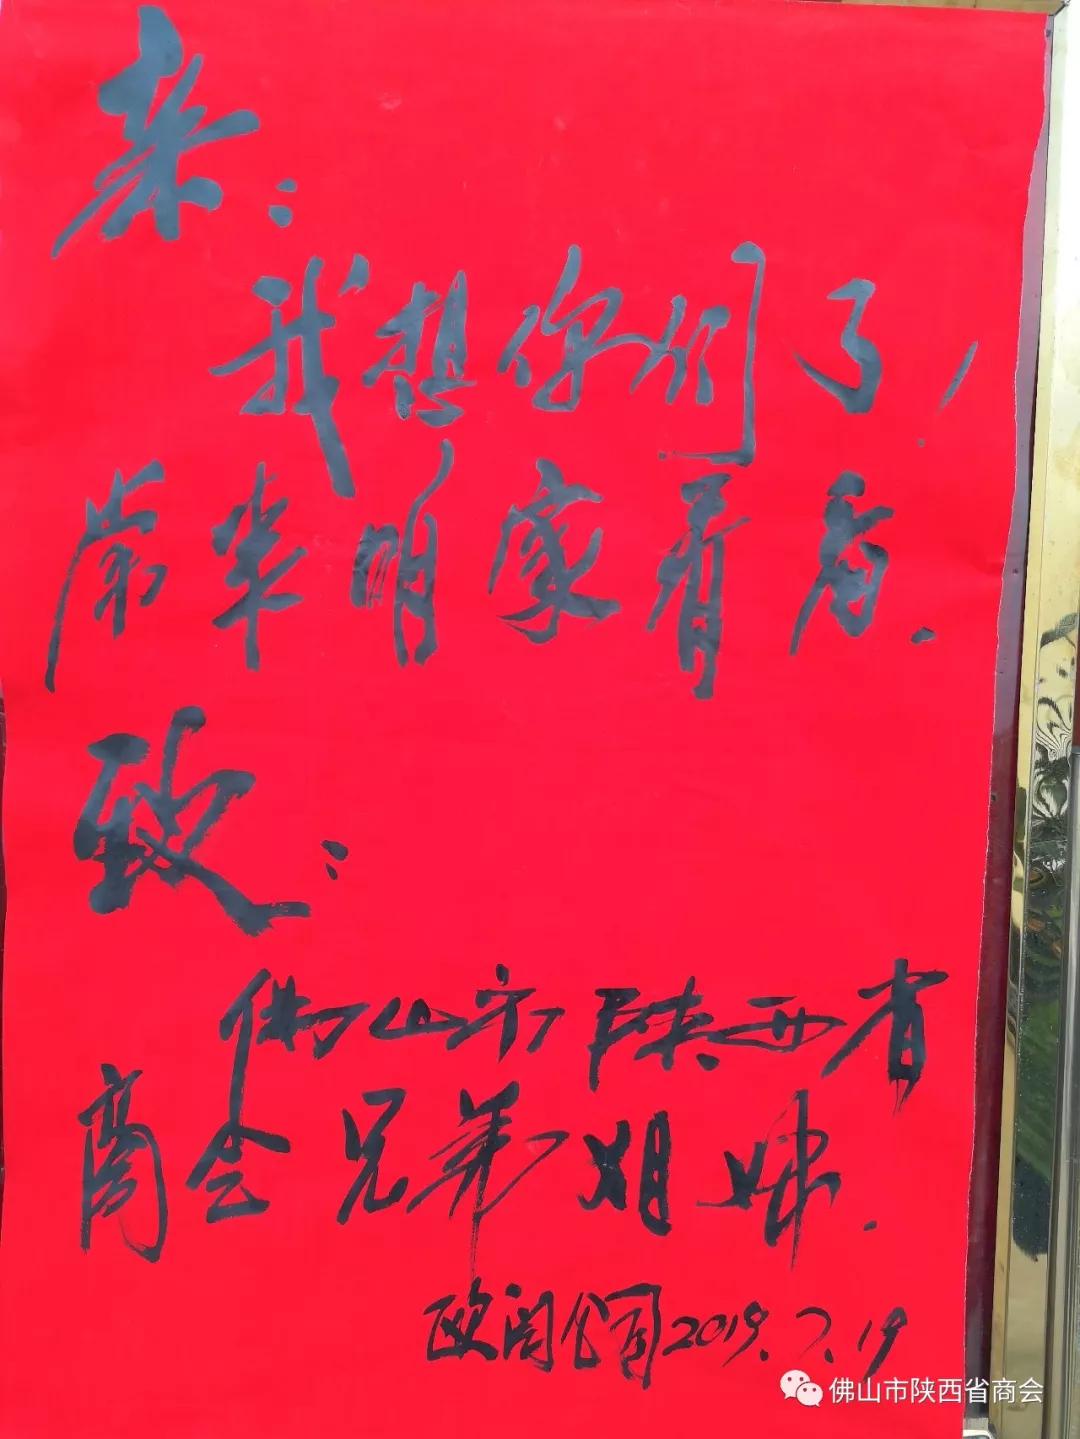 亲:
我想你们了!
常来咱家看看.
致:
佛山市陕西省
商会兄弟姐妹.
欧阁公司2019.7.19
佛山市陕西省商会